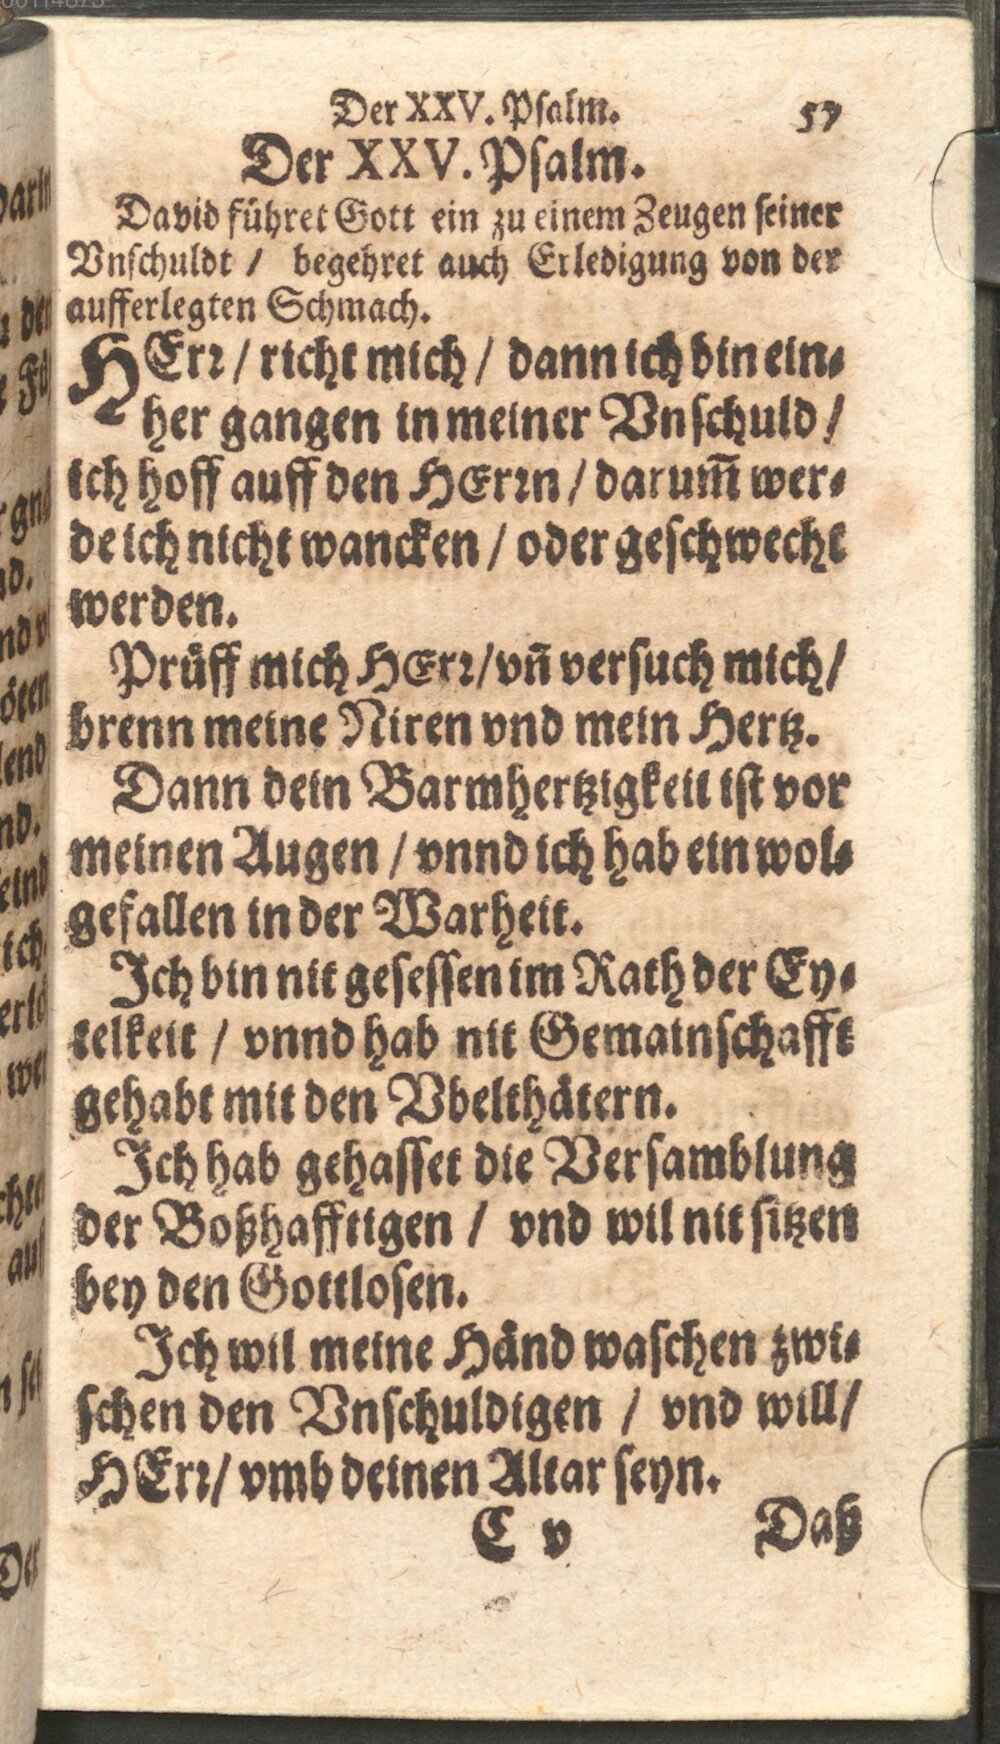 Der XXV. Psalm. 57
Der XXV. Psalm.
David führet Gott ein zu einem Zeugen seiner
Vnschuldt / begehret auch Erledigung von der
aufferlegten Schmach.
HErr / richt mich / dann ich bin ein-
her gangen in meiner Vnschuld /
ich hoff auff den HErrn / darum̃ wer-
de ich nicht wancken / oder geschwecht
werden.
Prüff mich HErr / vñ versuch mich /
brenn meine Niren vnd mein Hertz.
Dann dein Barmhertzigkeit ist vor
meinen Augen / vnnd ich hab ein wol-
gefallen in der Warheit.
Ich bin nit gesessen im Rath der Ey-
telkeit / vnnd hab nit Gemainschafft
gehabt mit den Vbelthätern.
Ich hab gehasset die Versamblung
der Boßhafftigen / vnd wil nit sitzen
bey den Gottlosen.
Ich wil meine Händ waschen zwi-
schen den Vnschuldigen / vnd will /
HErr / vmb deinen Altar seyn.
C v Daß